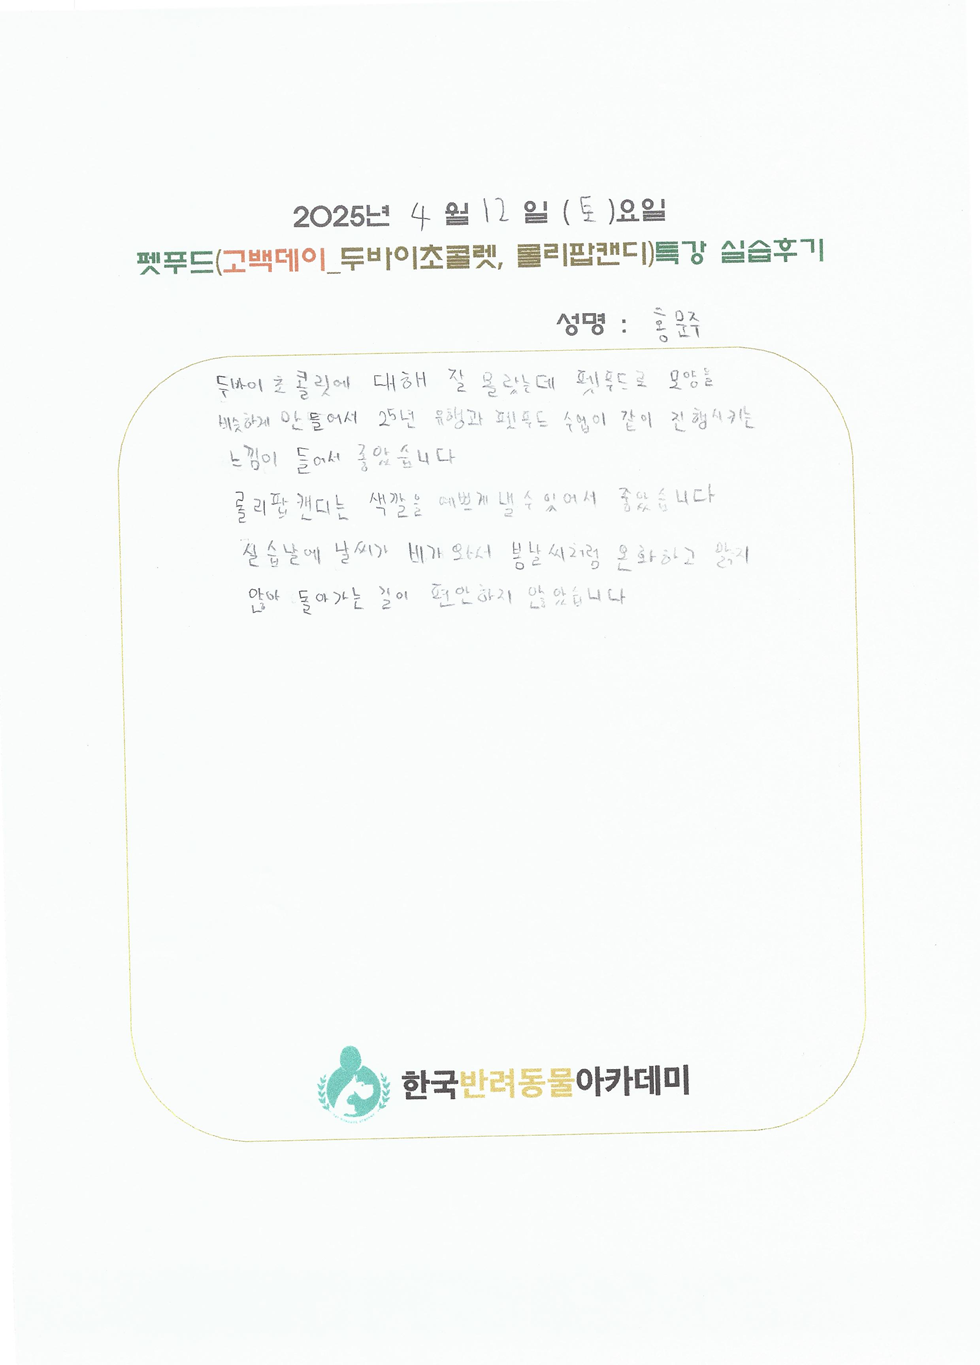 2025년 4 월 12 일 (토)요일
펫푸드(고백데이_두바이초콜렛, 롤리팝캔디)특강 실습후기
성명 : 홍문주
두바이 초콜릿에 대해 잘 몰랐는데 펫푸드로 모양을
비슷하게 만들어서 25년 유행과 펫푸드 수업이 같이 진행시키는
느낌이 들어서 좋았습니다
롤리팝 캔디는 색깔을 예쁘게 낼 수 있어서 좋았습니다
실습날에 날씨가 비가 와서 봄날씨처럼 온화하고 맑지
않아 돌아가는 길이 편안하지 않았습니다
한국반려동물아카데미